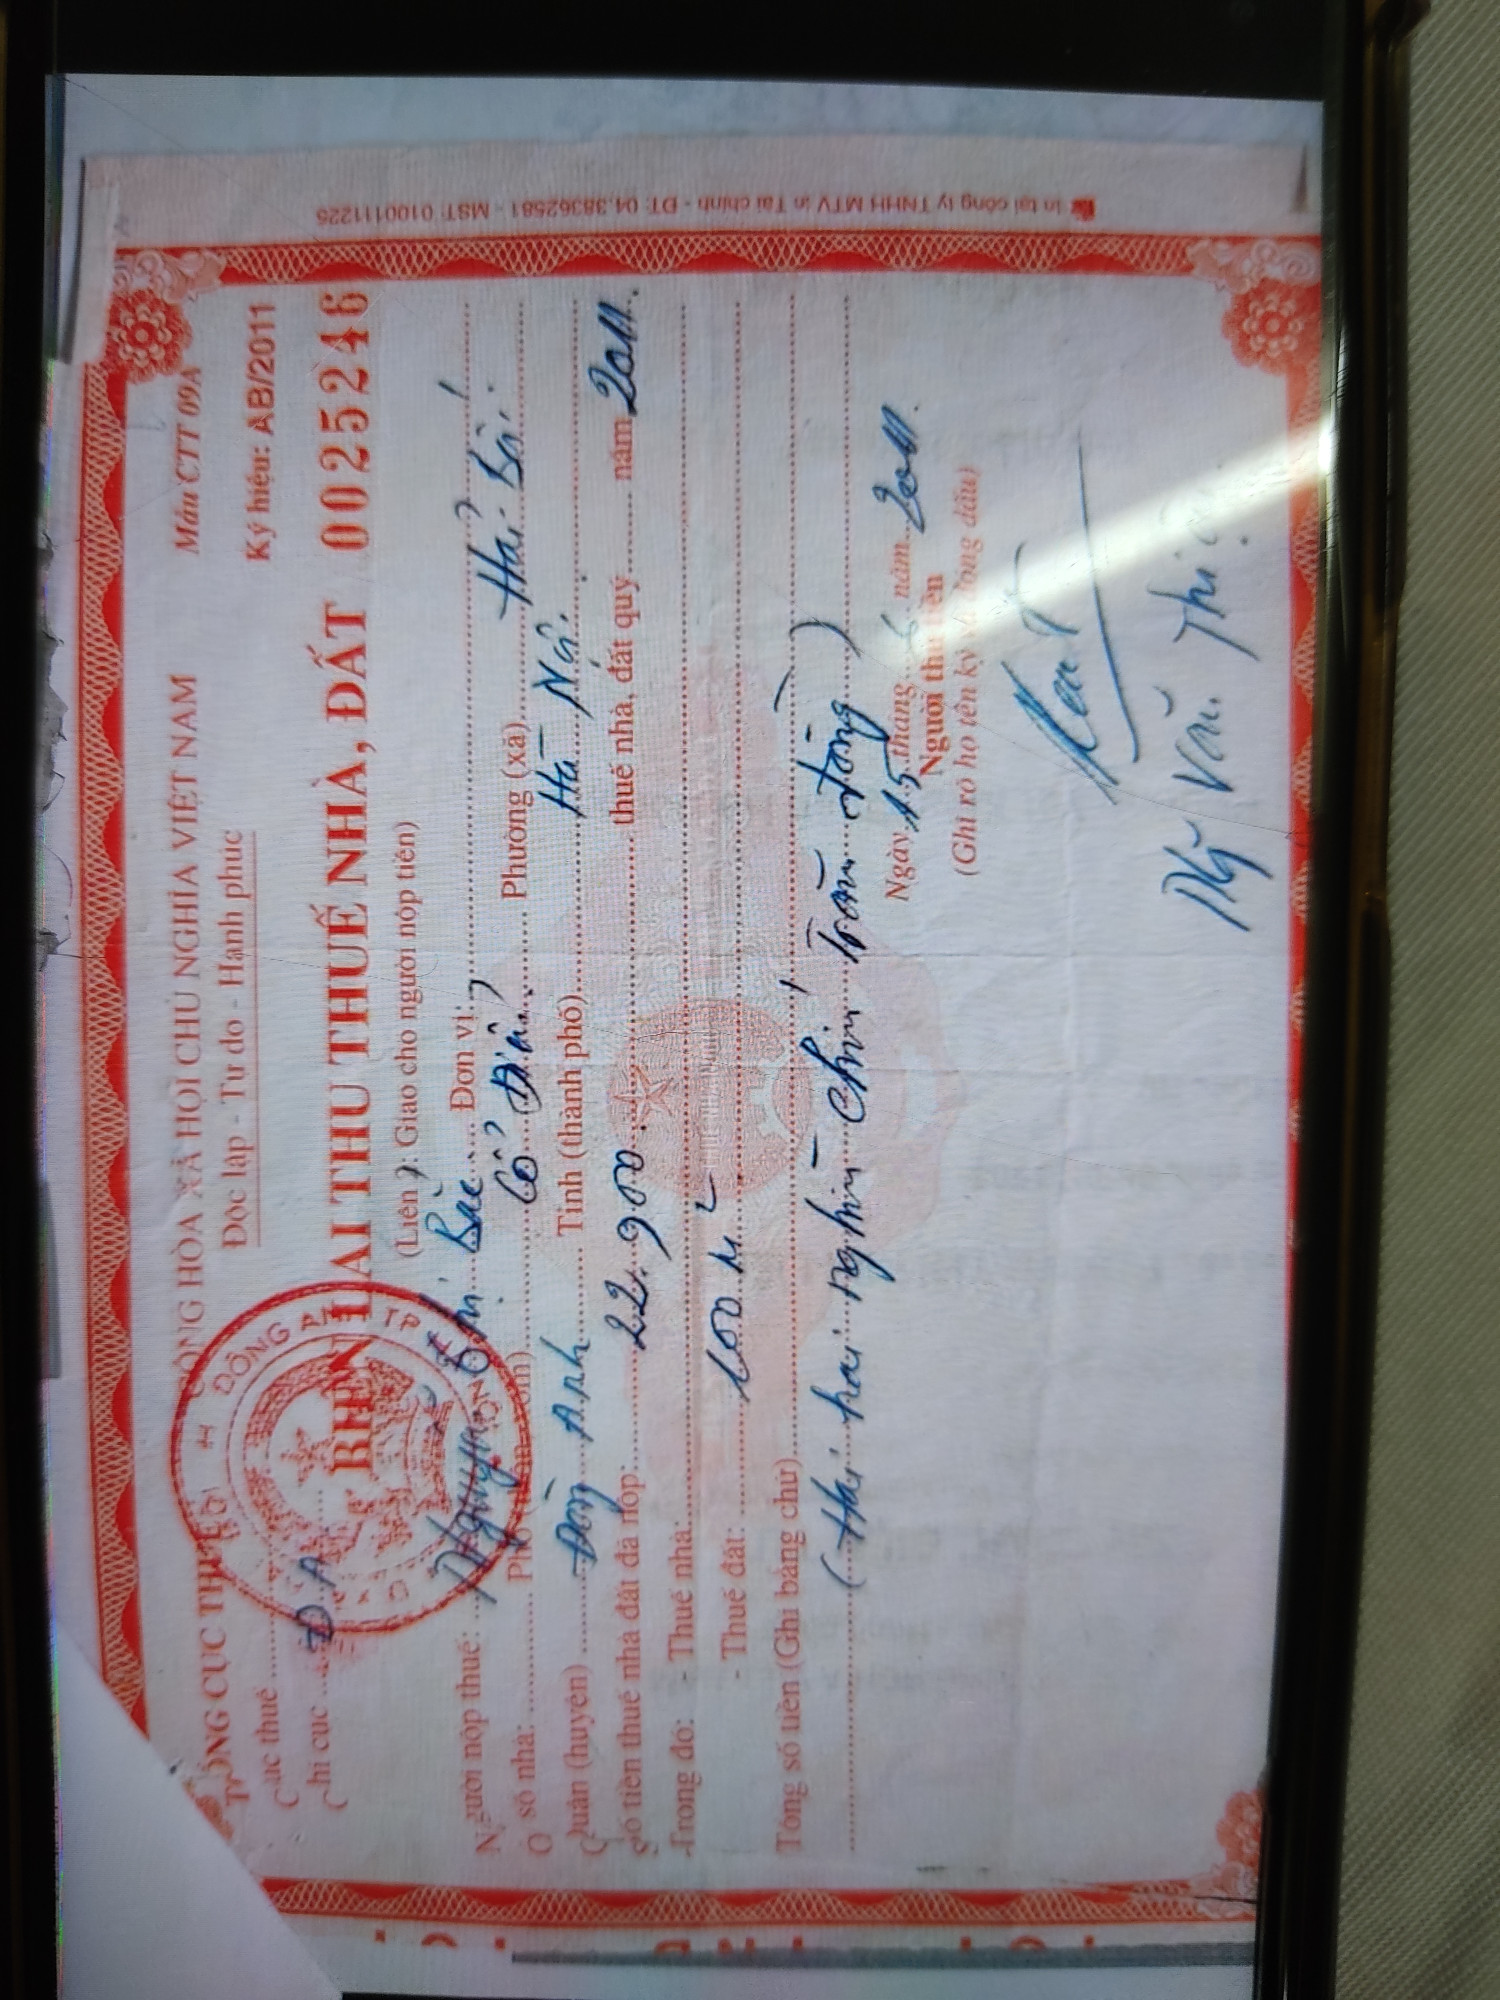 TỔNG CỤC THUẾ
CỘNG HÒA XÃ HỘI CHỦ NGHĨA VIỆT NAM
Mẫu CTT 09A
Cục thuế
Độc lập - Tự do - Hạnh phúc
Chi cục Đ.A
Ký hiệu: AB/2011
BIÊN LAI THU THUẾ NHÀ, ĐẤT 0025246
(Liên 2: Giao cho người nộp tiền)
Người nộp thuế: Nguyễn Thị Đơn vị: Hải Bối
Ở số nhà: Phố (thôn xóm) Cổ Điển Phường (xã) Hải Bối
Quận (huyện) Đông Anh Tỉnh (thành phố) Hà Nội
Số tiền thuế nhà đất đã nộp: 22.900 thuế nhà, đất quý năm 2011.
Trong đó: - Thuế nhà:
- Thuế đất: 100 m2
Tổng số tiền (Ghi bằng chữ)
(Hai hai nghìn chín trăm đồng)
Ngày 15 tháng 6 năm 2011.
Người thu tiền
(Ghi rõ họ tên ký và đóng dấu)
Văn
In tại công ty TNHH MTV In Tài chính - ĐT: 04.38362581 - MST: 0100111225
ĐÔNG ANH TP